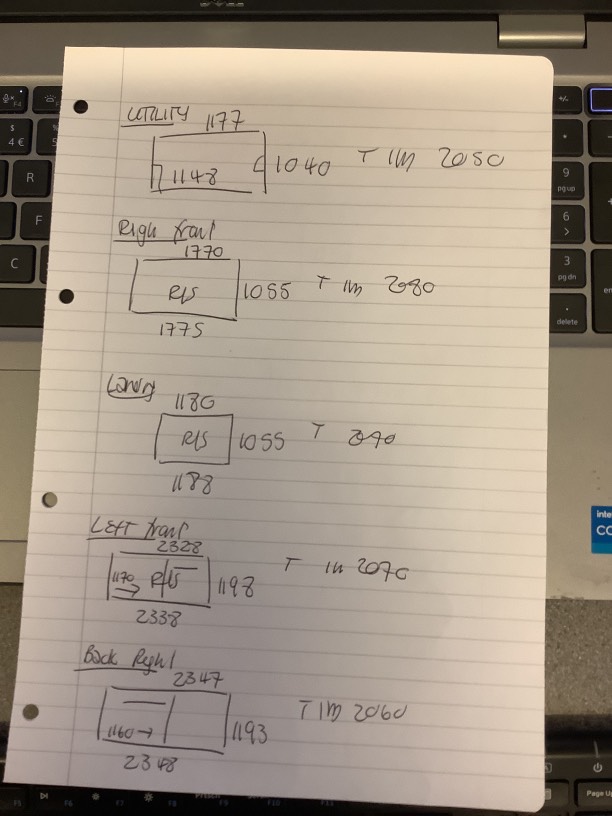 UTILITY 1177
1148 1040 T 1M 2050
Righ front
1770
R/S 1055 T 1M 2080
1775
1180
R/S 1055 T
1188
LEFT front
2328
1170 R/S 1198 T 1M 2070
2338
Back Right
2347
1160 1193 T 1M 2060
2348
$
4 €
R
F
C
+/-
*
9
pg up
6
>
3
pg dn
.
delete